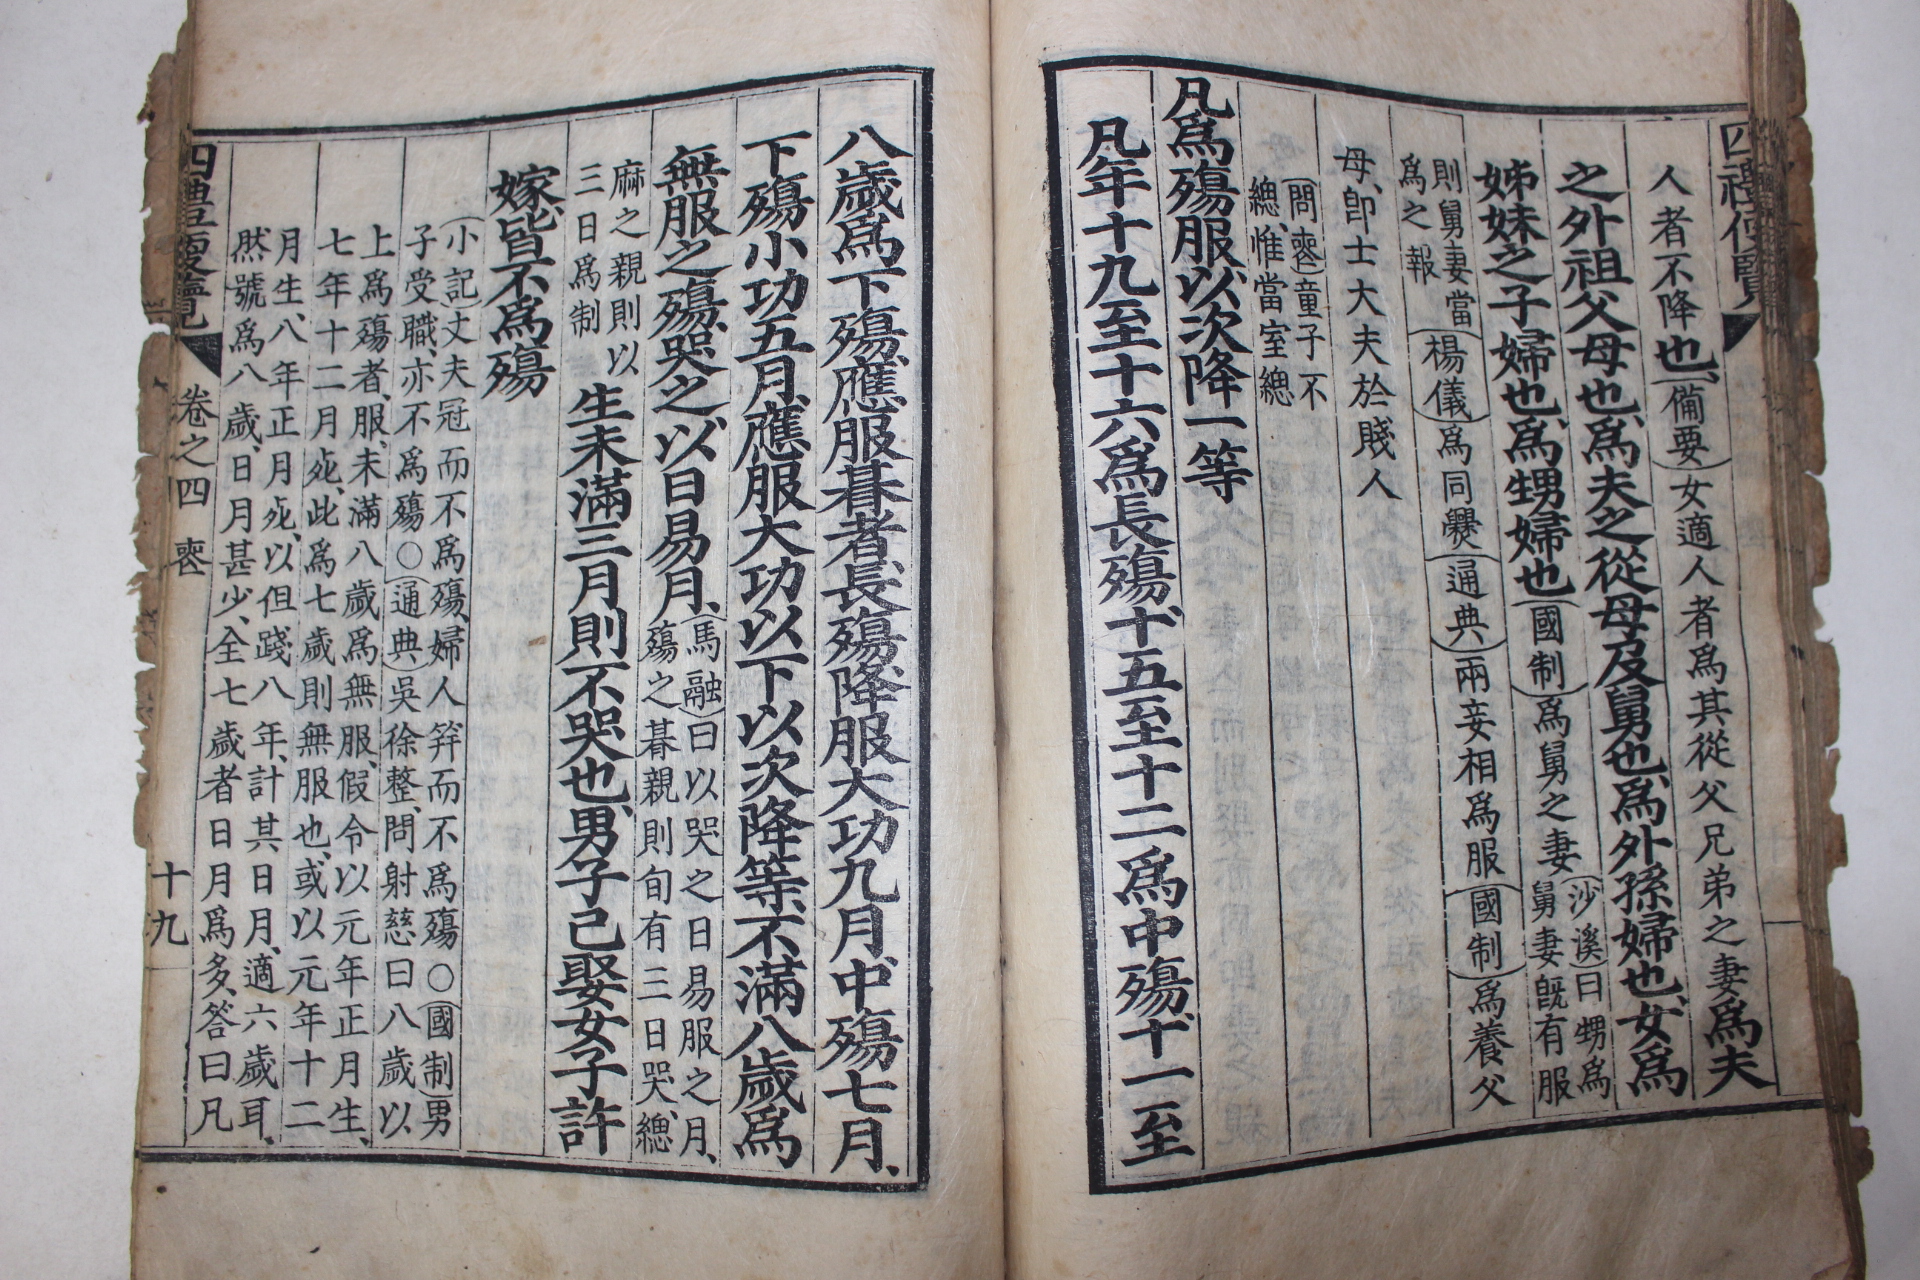 四禮便覽
人者不降也、(備要)女適人者爲其從父兄弟之妻爲夫
之外祖父母也、爲夫之從母及舅也、爲外孫婦也、女爲
姊妹之子婦也、爲甥婦也(國制)爲舅之妻沙溪曰甥爲
舅妻旣有服
則舅妻當
爲之報(楊儀)爲同爨(通典)兩妾相爲服(國制)爲養父
母、卽士大夫於賤人
(問喪)童子不
緦、惟當室緦
凡爲殤服以次降一等
凡年十九至十六爲長殤、十五至十二爲中殤、十一至
八歲爲下殤、應服朞者、長殤降服大功九月、中殤七月、
下殤小功五月、應服大功以下以次降等、不滿八歲爲
無服之殤、哭之、以日易月、(馬融)曰以哭之日易服之月、
殤之朞親則旬有三日哭、緦
麻之親則以
三日爲制
生未滿三月則不哭也、男子已娶女子許
嫁、皆不爲殤
(小記)丈夫冠而不爲殤、婦人筓而不爲殤○(國制)男
子受職、亦不爲殤○(通典)吳徐整、問射慈曰八歲以
上爲殤者、服、未滿八歲爲無服、假令以元年正月生、
七年十二月死、此爲七歲則無服也、或以元年十二
月生、八年正月死、以但踐八年、計其日月、適六歲耳、
然號爲八歲、日月甚少、全七歲者日月爲多、答曰凡
四禮便覽
卷之四 喪
十九